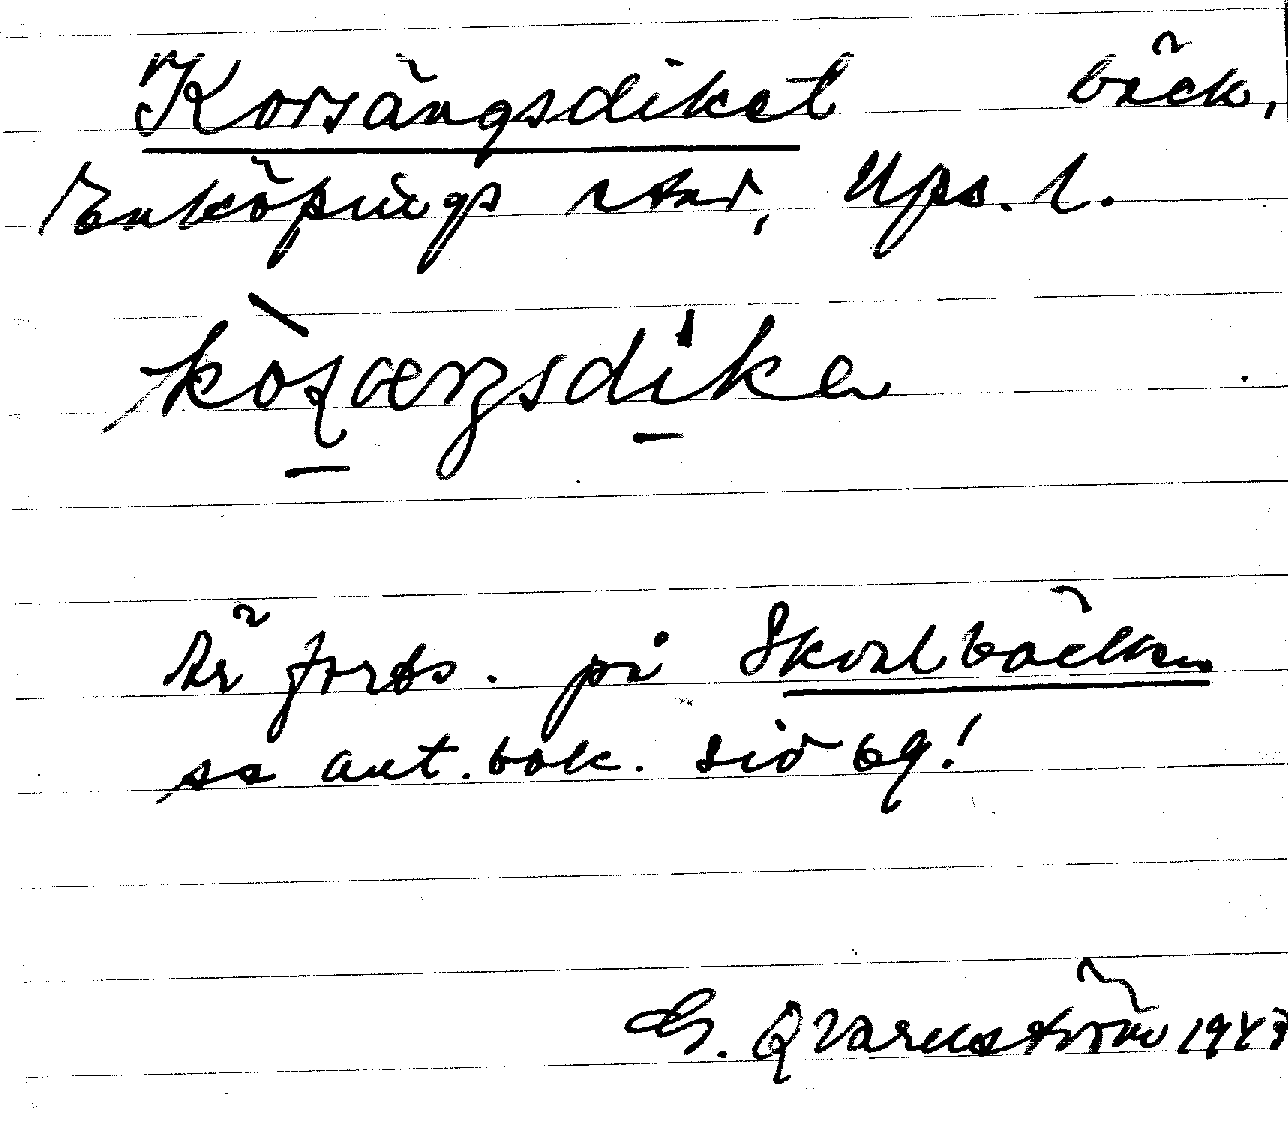 Korsängsdiket bäck,
Enköpings stad, Ups. l.
kòʂæŋsdike
Är forts. på Skoalbäcken
se ant.bok. sid 69!
G. Qvarnström 1947